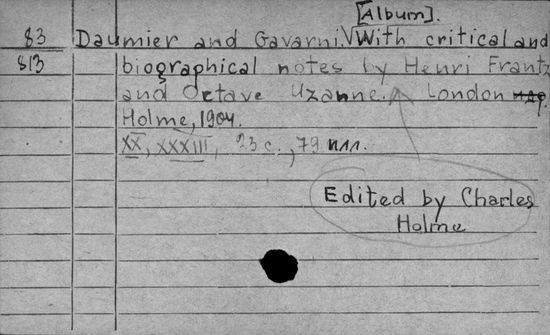 [Album].
83 Daumier and Gavarni. With critical and
813 biographical notes by Henri Frantz
and Octave Uzanne. London
Holme, 1904.
XX, XXXIII, 23 с., 79 илл.
Edited by Charles
Holme